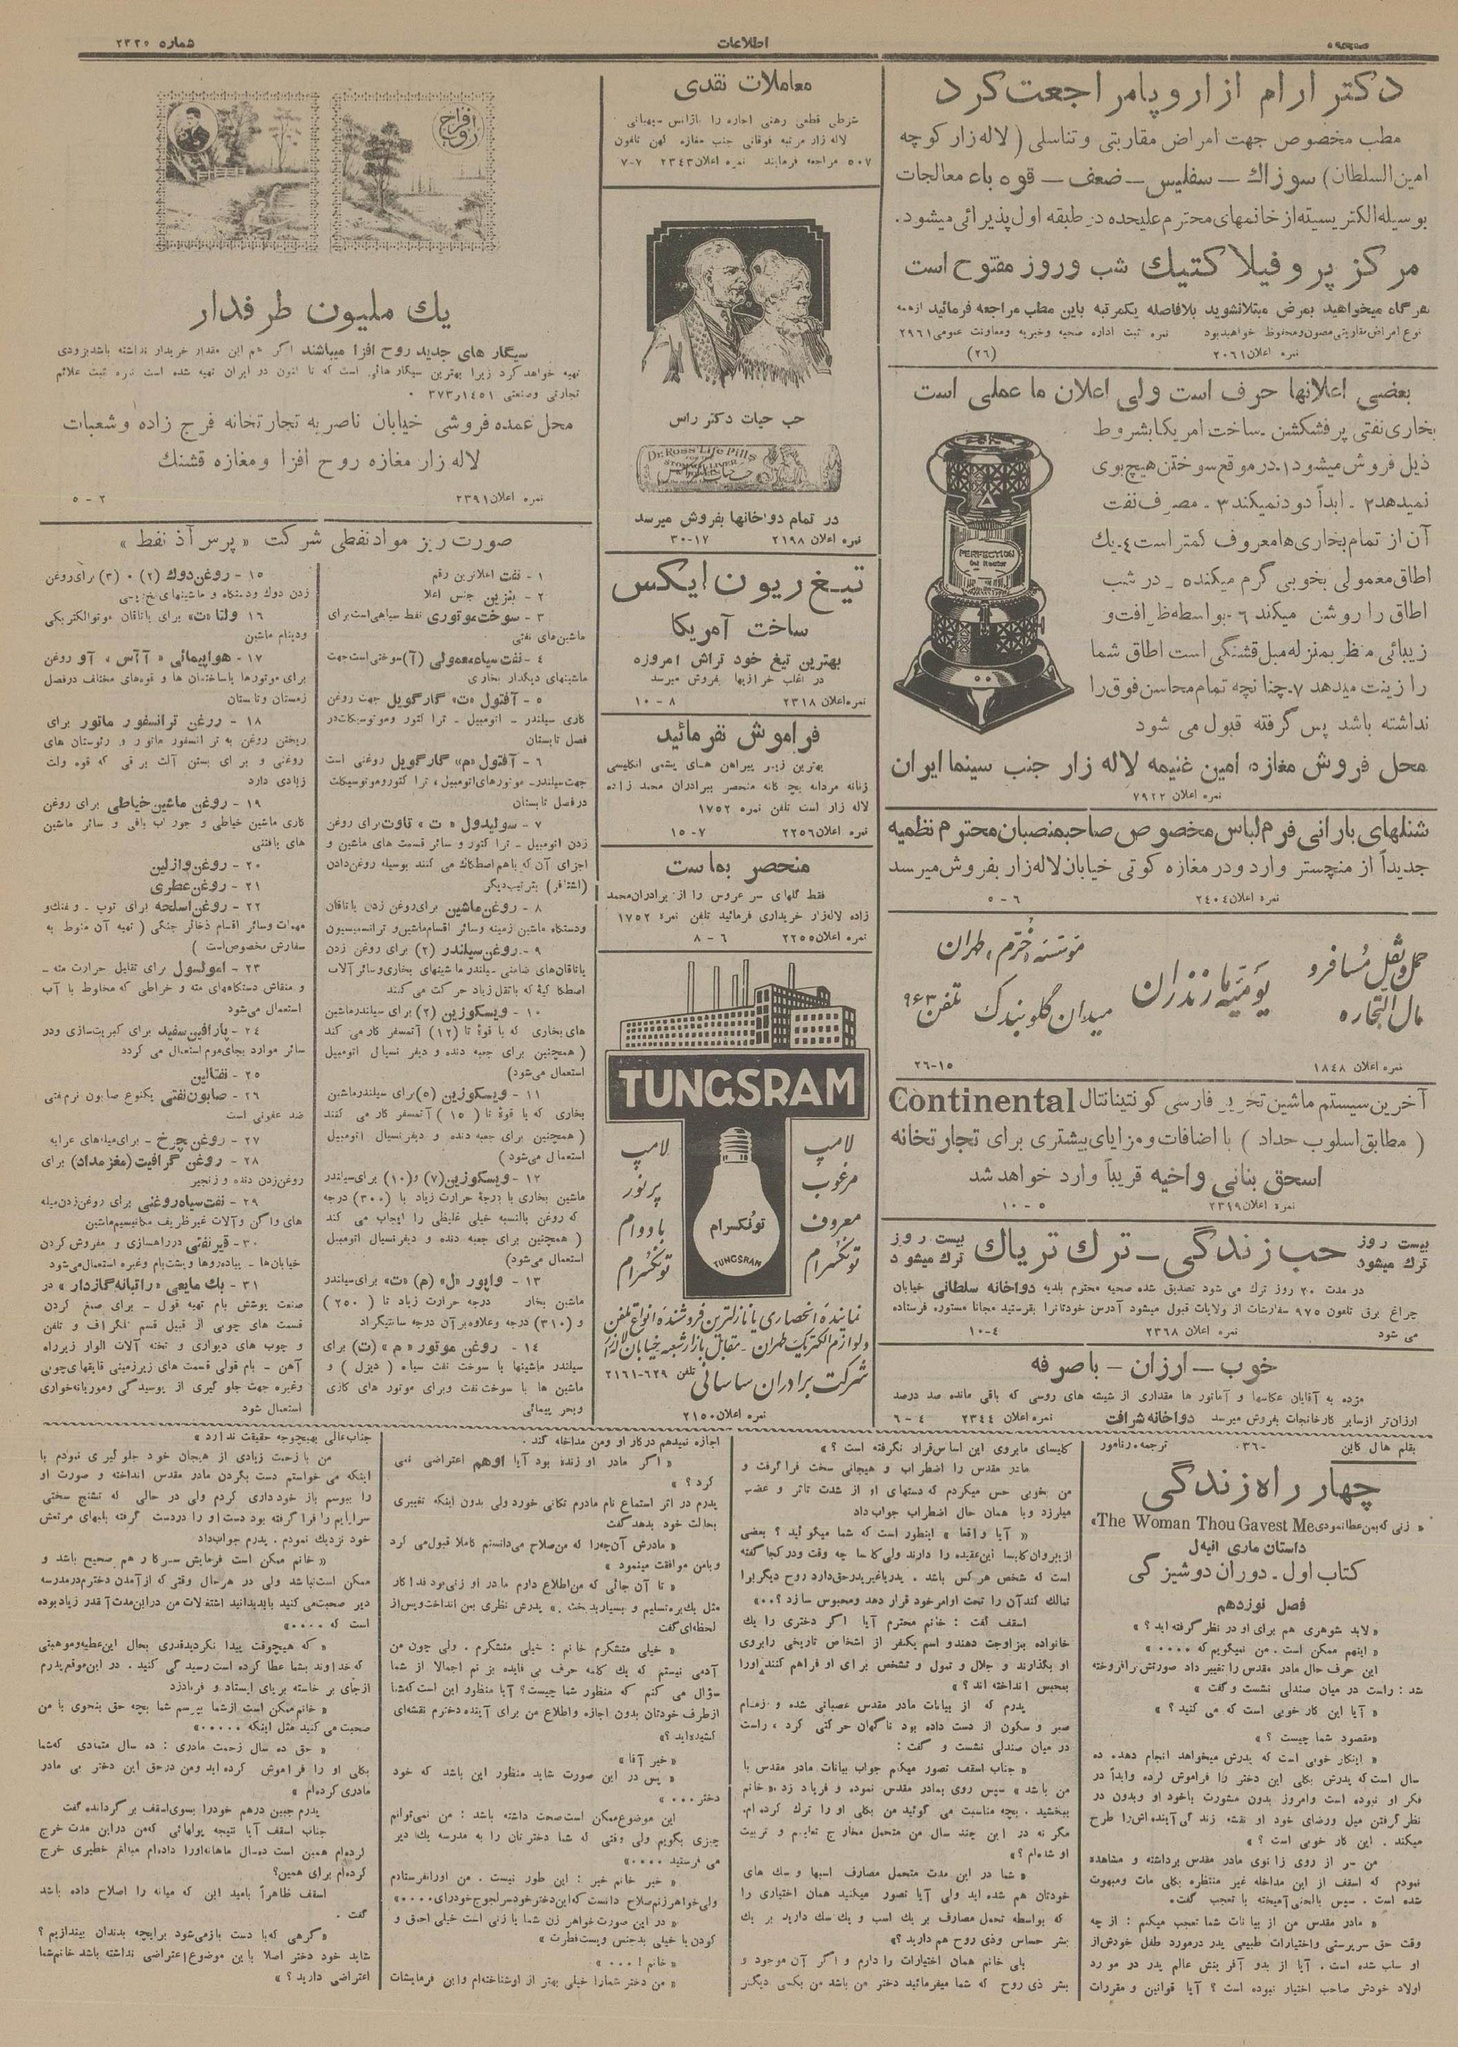 اطلاعات
شماره ۲۳۲۵
دکتر ارام از اروپا مراجعت کرد
مطب مخصوص جهت امراض مقاربتی و تناسلی ( لاله زار کوچه
امین السلطان) سوزاك – سفلیس – ضعف – قوه باء معالجات
بوسیله الکتریسیته از خانمهای محترم علیحده در طبقه اول پذیرائی میشود.
مرکز پروفیلاکتیك شب وروز مفتوح است
هرگاه میخواهید بمرض مبتلانشوید بلافاصله یکمرتبه باین مطب مراجعه فرمائید ازهمه
نوع امراض مقاربتی مصون ومحفوظ خواهیدبود نمره ثبت اداره صحیه وخیریه ومعاونت عمومی ۲۹۶۱
نمره اعلان ۲۰۶۱ (۲۶)
بعضی اعلانها حرف است ولی اعلان ما عملی است
بخاری نفتی پرفشکشن . ساخت امریکا بشروط
ذیل فروش میشود ۱. درموقع سوختن هیچ بوی
نمیدهد ۲ - ابداً دود نمیکند ۳ - مصرف نفت
آن از تمام بخاری ها معروف کمتر است ۴. یك
اطاق معمولی بخوبی گرم میکند ه - در شب
اطاق را روشن میکند ۶ - بواسطه ظرافت و
زیبائی منظر بمنزله مبل قشنگی است اطاق شما
را زینت میدهد ۷. چنانچه تمام محاسن فوق را
نداشته باشد پس گرفته قبول می شود
PERFECTION
Oil Heater
محل فروش مغازه امین غنیمه لاله زار جنب سینما ایران
نمره اعلان ۷۹۲۲
شنلهای بارانی فرم لباس مخصوص صاحبمنصبان محترم نظمیه
جدیداً از منچستر وارد ودر مغازه کوتی خیابان لاله زار بفروش میرسد
نمره اعلان ۲۴۰۴ ۶ – ۵
حمل و نقل مسافر و
مال التجاره
یومیه مازندران
موسسه محترم طهران
میدان گلوبندك تلفن ۹۶۳
نمره اعلان ۱۸۴۸ ۱۵-۲۶
آخرین سیستم ماشین تحریر فارسی کونتیناتال Continental
( مطابق اسلوب حداد ) با اضافات ومزایای بیشتری برای تجارتخانه
اسحق بنانی واخیه قریباً وارد خواهد شد
نمره اعلان ۲۳۴۹ ۵ - ۱۰
بیست روز
ترك میشود
حب زندگی – ترك تریاك
بیست روز
ترك میشود
در مدت ۲۰ روز ترك می شود تصدیق شده صحیه محترم بلدیه دواخانه سلطانی خیابان
چراغ برق تلفون ۹۷۵ سفارشات از ولایات قبول میشود آدرس خودتانرا بفرستید مجانا مستوره فرستاده
می شود نمره اعلان ۲۳۶۸ ۴-۱۰
خوب – ارزان – باصرفه
مژده به آقایان عکاسها و آماتور ها مقداری از شیشه های روسی که باقی مانده صد درصد
ارزان تر ازسایر کارخانجات بفروش میرسد دواخانه شرافت نمره اعلان ۲۳۴۴ ۴ – ۶
معاملات نقدی
شرطی قطعی رهنی اجاره را باژانس
لاله زار مرتبه فوقانی جنب مغازه کهن تلفون
۵۰۷ مراجعه فرمایند نمره اعلان ۲۳۴۳ ۷-۷
حب حیات دکتر راس
Dr. Ross' Life Pills
FOR THE
STOMACH LIVER
در تمام دواخانها بفروش میرسد
نمره اعلان ۲۱۹۸ ۱۷-۳۰
تیغ ریون ایکس
ساخت آمریکا
بهترین تیغ خود تراش امروزه
در اغلب خرازیها بفروش میرسد
نمره اعلان ۲۳۱۸ ۸ - ۱۰
فراموش نفرمائید
بهترین زیر پیراهن های پشمی انگلیسی
زنانه مردانه بچه گانه منحصر ببرادران محمد زاده
لاله زار است تلفن نمره ۱۷۵۲
نمره اعلان ۲۲۵۶ ۷-۱۵
منحصر بماست
فقط گلهای سر عروس را از برادران محمد
زاده لاله زار خریداری فرمائید تلفن نمره ۱۷۵۲
نمره اعلان ۲۲۵۵ ۶ - ۸
TUNGSRAM
لامپ
مرغوب
معروف
تونگسرام
لامپ
پرنور
بادوام
تونگسرام
تونگسرام
TUNGSRAM
نماینده انحصاری یا نازلترین فروشنده انواع تلفن
ولوازم الکتریك طهران - مقابل بازار شعبه خیابان لاله زار
شرکت برادران ساسانی تلفن ۶۲۹-۲۱۶۱
نمره اعلان ۲۱۵۰
روح افزا
یك ملیون طرفدار
سیگار های جدید روح افزا میباشند اگر هم این مقدار خریدار نداشته باشد بزودی
تهیه خواهد کرد زیرا بهترین سیگار هائی است که تا کنون در ایران تهیه شده است نمره ثبت علائم
تجارتی وصنعتی ۱۴۵۱ر۳۷۳ .
محل عمده فروشی خیابان ناصریه تجارتخانه فرج زاده وشعبات
لاله زار مغازه روح افزا ومغازه قشنك
نمره اعلان ۲۳۹۱ ۲ - ۵
صورت ریز مواد نفطی شرکت « پرس آذ نفط »
۱ - نفت اعلاترین رقم
۲ - بنزین جنس اعلا
۳ - سوخت موتوری نفط سیاهی است برای
ماشین های نفتی
۴ - نفت سیاه معمولی (آ) سوختی است جهت
ماشینهای دیگدار بخاری
۵ - آفتول «ت» گارگویل جهت روغن
کاری سیلندر - اتومبیل - تراکتور وموتوسیکلت در
فصل تابستان
۶ - آفتول «م» گارگویل روغنی است
جهت سیلندر - موتورهای اتومبیل ، تراکتور وموتوسیکلت
در فصل تابستان
۷ - سولیدول « ت » تاوت برای روغن
زدن اتومبیل - تراکتور و سائر قسمت های ماشین و
اجزای آن که باهم اصطکاك می کنند بوسیله روغن دادن
بترتیب دیگر
۸ - روغن ماشین برای روغن زدن یاتاقان
ودستگاه ماشین زمینه وسائر اقسام ماشین و ترانسمیسیون
۹ - روغن سیلندر (۲) برای روغن زدن
یاتاقان های ضامنی - سیلندر ماشینهای بخاری وسائر آلات
اصطکاکیه که باثقل زیاد حرکت می کنند
۱۰ - ویسکوزین (۲) برای سیلندر ماشین
های بخاری که با قوۀ تا (۱۲) آتمسفر کار می کند
( همچنین برای جعبه دنده و دیفرنسیال اتومبیل
استعمال می شود)
۱۱ - ویسکوزین (۵) برای سیلندر ماشین
بخاری که با قوۀ تا ( ۱۵ ) آتمسفر کار می کنند
( همچنین برای جعبه دنده و دیفرنسیال اتومبیل
استعمال می شود )
۱۲ - ویسکوزین (۷) و (۱۰) برای سیلندر
ماشین بخاری با درجۀ حرارت زیاد تا (۳۰۰) درجه
که روغن بالنسبه خیلی غلیظی را ایجاب می کند
( همچنین برای جعبه دنده و دیفرنسیال اتومبیل
استعمال می شود)
۱۳ - واپور «ل» (م) «ت» برای سیلندر
ماشین بخار درجه حرارت زیاد تا ( ۲۵۰ )
و (۳۱۰) درجه وعلاوه بر آن درجه سانتیگراد
۱۴ - روغن موتور «م» (ت) برای
سیلندر ماشینها با سوخت نفت سیاه ( دیزل ) و
ماشین ها با سوخت نفت وبرای موتور های گازی
وبحر پیمائی
۱۵ - روغن دوك (۲) ، (۳) برای روغن
زدن دوك ودستگاه و ماشینهای نخ ریسی
۱۶ - ولتا «ت» برای یاتاقان موتو الکتریکی
ودینام ماشین
۱۷ - هواپیمائی « آآس ، آو روغن
برای موتورها باساختمان ها و قوه های مختلف درفصل
زمستان وتابستان
۱۸ - روغن ترانسفور ماتور برای
ریختن روغن به ترانسفور ماتور و رئوستان های
روغنی و برای بستن آلت برقی که قوه ولت
زیادی دارد
۱۹ - روغن ماشین خیاطی برای روغن
کاری ماشین خیاطی و جوراب بافی و سائر ماشین
های بافتنی
۲۰ - روغن وازلین
۲۱ - روغن عطری
۲۲ - روغن اسلحه برای توپ - وتفنك و
مهمات وسائر اقسام ذخائر جنگی ( تهیه آن منوط به
سفارش مخصوص است )
۲۳ - امولسول برای تقلیل حرارت مته -
و منقاش دستگاههای مته و خراطی که مخلوط با آب
استعمال می شود
۲۴ - پارافین سفید برای کبریت سازی ودر
سائر موارد بجای موم استعمال می گردد
۲۵ - نفتالین
۲۶ - صابون نفتی یکنوع صابون نرم نفتی
ضد عفونی است
۲۷ - روغن چرخ - برای میله های عرابه
۲۸ - روغن گرافیت (مغز مداد) برای
روغن زدن دنده و زنجیر
۲۹ - نفت سیاه روغنی برای روغن زدن میله
های واگن وآلات غیر ظریف مکانیسیم ماشین
۳۰ - قیر نفتی درراهسازی و مفروش کردن
خیابان ها - پیاده روها وپشت بام وغیره استعمال می شود
۳۱ - بك مایعی «راتبانه گازدار» در
صنعت پوشش بام تهیه قول - برای صمغ کردن
قسمت های چوبی از قبیل قسم تلگراف و تلفن
و چوب های دیواری و تخته آلات الوار زیر راه
آهن - بام قولی قسمت های زیرزمینی قایقهای چوبی
وغیره جهت جلو گیری از پوسیدگی وموریانه خواری
استعمال شود
بقلم هال کاین -۳۶۰ ترجمه ، رنامور
چهار راه زندگی
« زنی که بمن عطا نمودی The Woman Thou Gavest Me»
داستان ماری انیل
کتاب اول - دوران دوشیزگی
فصل نوزدهم
« لابد شوهری هم برای او در نظر گرفته اید ؟ »
« اینهم ممکن است . من نمیگویم که ۰۰۰۰ »
این حرف حال مادر مقدس را تغییر داد صورتش رافروخته
شد : راست در میان صندلی نشست و گفت »
« آیا این کار خوبی است که می کنید ؟ »
«مقصود شما چیست ؟ »
« اینکار خوبی است که پدرش میخواهد انجام دهد. ده
سال است که پدرش بکلی این دختر را فراموش کرده وابداً در
فکر او نبوده است وامروز بدون مشورت باخود او وبدون در
نظر گرفتن میل ورضای خود او نقشه زندگی آینده اش را طرح
میکند . این کار خوبی است ؟ »
من سر از روی زانوی مادر مقدس برداشته و مشاهده
نمودم که اسقف از این مداخله غیر منتظره بکلی مات ومبهوت
شده است . سپس بالحنی آمیخته با تعجب گفت.
« مادر مقدس من از بیانات شما تعجب میکنم : از چه
وقت حق سرپرستی واختیارات طبیعی پدر درمورد طفل خودش از
او سلب شده است . آیا از بدو آفرینش عالم پدر در مورد
اولاد خودش صاحب اختیار نبوده است ؟ آیا قوانین و مقررات
کلیسای مابروی این اساس قرار نگرفته است ؟ »
مادر مقدس را اضطراب و هیجانی سخت فرا گرفت و
من بخوبی حس میکردم که دستهای او از شدت تاثر و غضب
میلرزد وبا همان حال اضطراب جواب داد
« آیا واقعا » اینطور است که شما میگوئید ؟ بعضی
ازپیروان کلیسا این عقیده را دارند ولی کلیسا چه وقت ودر کجا گفته
است که شخص هر کس باشد . پدر یا غیر پدر حق دارد روح دیگر را
تملك کند آن را تحت اوامر خود قرار دهد ومحبوس سازد ؟ »۰۰
اسقف گفت : خانم محترم آیا اگر دختری را بیك
خانواده بنزاوجت دهند و اسم یکنفر از اشخاص تاریخی رابروی
او بگذارند و جلال و تمول و تشخص برای او فراهم کنند اورا
بمحبس انداخته اند ؟ »
پدرم که از بیانات مادر مقدس عصبانی شده و زمام
صبر و سکون از دست داده بود ناگهان حرکتی کرد ، راست
در میان صندلی نشست و گفت :
« جناب اسقف تصور میکنم جواب بیانات مادر مقدس با
من باشد » سپس روی بمادر مقدس نموده و فریاد زد ، « خانم
ببخشید . بچه مناسبت می گوئید من بکلی او را ترك کرده ام.
مگر نه در این چند سال من متحمل مخارج تعلیم و تربیت
او شده ام ؟ »
« شما در این مدت متحمل مصارف اسبها و سك های
خودتان هم شده اید ولی آیا تصور میکنید همان اختیاری را
که بواسطه تحمل مصارف بر یك اسب و یك سك دارید بر یك
بشر حساس وذی روح هم دارید ؟»
بلی خانم همان اختیارات را دارم و اگر آن موجود و
بشر ذی روح که شما میفرمائید دختر من باشد من بکسی دیگر
اجازه نمیدهم درکار او ومن مداخله کند .
« اگر مادر او زنده بود آیا اوهم اعتراضی نمی
کرد ؟ »
پدرم در اثر استماع نام مادرم تکانی خورد ولی بدون اینکه تغییری
بحالت خود بدهد گفت
« مادرش آن چه را که من صلاح می دانستم کاملا قبول می کرد
وبامن موافقت مینمود »
« تا آن جائی که من اطلاع دارم مادر او زنی بود فداکار
مثل یك بره تسلیم و بسیار بدبخت . » پدرش نظری بمن انداخت وپس از
لحظه ای گفت
« خیلی متشکرم خانم : خیلی متشکرم . ولی چون من
آدمی نیستم که یك کلمه حرف بی فایده بزنم اجمالا از شما
سؤال می کنم که منظور شما چیست؟ آیا منظور این است که شما
ازطرف خودتان بدون اجازه واطلاع من برای آینده دخترم نقشه ای
کشیده اید ؟ »
« خیر آقا »
« پس در این صورت شاید منظور این باشد که خود
دختر ۰۰۰ »
این موضوع ممکن است صحت داشته باشد : من نمی توانم
چیزی بگویم ولی وقتی که شما دخترتان را به مدرسه یك دیر
می فرستید ۰۰۰۰»
« خیر خانم خیر : این طور نیست . من اورا نفرستادم
ولی خواهر زنم صلاح دانست که این دختر خودسر لجوج خودرای ۰۰۰۰»
« در این صورت خواهر زن شما یا زنی است خیلی احمق و
کودن یا خیلی بدجنس وپست فطرت »
« خانم ! ۰۰۰ »
« من دختر شمارا خیلی بهتر از اوشناخته ام واین فرمایشات
جناب عالی بهیچوجه حقیقت ندارد »
من با زحمت زیادی از هیجان خود جلوگیری نمودم با
اینکه می خواستم دست بگردن مادر مقدس انداخته و صورت او
را ببوسم باز خودداری کردم ولی در حالی که تشنج سختی
سراپایم را فرا گرفته بود دست او را دردست گرفته بلبهای مرتعش
خود نزدیك نمودم . پدرم جواب داد
« خانم ممکن است فرمایش سرکار هم صحیح باشد و
ممکن است نباشد ولی در هر حال وقتی که از آمدن دخترم در مدرسه
دیر صحبت می کنید بایدبدانید اشتغالات من دراین مدت آنقدر زیاد بوده
است که ۰۰۰۰ »
« که هیچوقت پیدا نکردید قدری بحال این عطیه وموهبتی
که خداوند بشما عطا کرده است رسیدگی کنید . در این موقع پدرم
ازجای برخاسته برپای ایستاد و فریاد زد
« خانم ممکن است از شما بپرسم شما بچه حق بنحوی با من
صحبت می کنید مثل اینکه ۰۰۰۰۰»
« حق ده سال زحمت مادری : ده سال متمادی که شما
بکلی او را فراموش کرده اید ومن درحق این دختر بی مادر
مادری کرده ام »
پدرم جبین درهم خودرا بسوی اسقف برگردانده گفت
جناب اسقف آیا نتیجه پولهائی که من دراین مدت خرج
کرده ام همین است ده سال ماهانه اورا داده ام مبالغ خطیری خرج
کرده ام برای همین؟
اسقف ظاهراً بامید این که میانه را اصلاح داده باشد
گفت .
« گرهی که با دست بازمی شود برایچه بدندان بیندازیم ؟
شاید خود دختر اصلا با این موضوع اعتراضی نداشته باشد خانم شما
اعتراضی دارید ؟ »